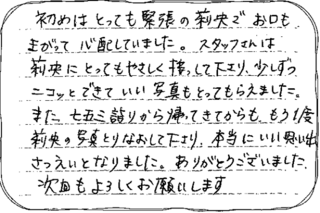 初めは とっても 緊張の 莉央で お口も
上がって 心配していました。スタッフさんは
莉央に とってもやさしく 接して下さり、少しずつ
ニコッと できて いい 写真も とってもらえました。
また、七五三詣りから 帰ってきてからも、もう1度
莉央の 写真とりなおして下さり、本当に いい 思い出
さつえいと なりました。ありがとうございました。
次回も よろしく お願いします